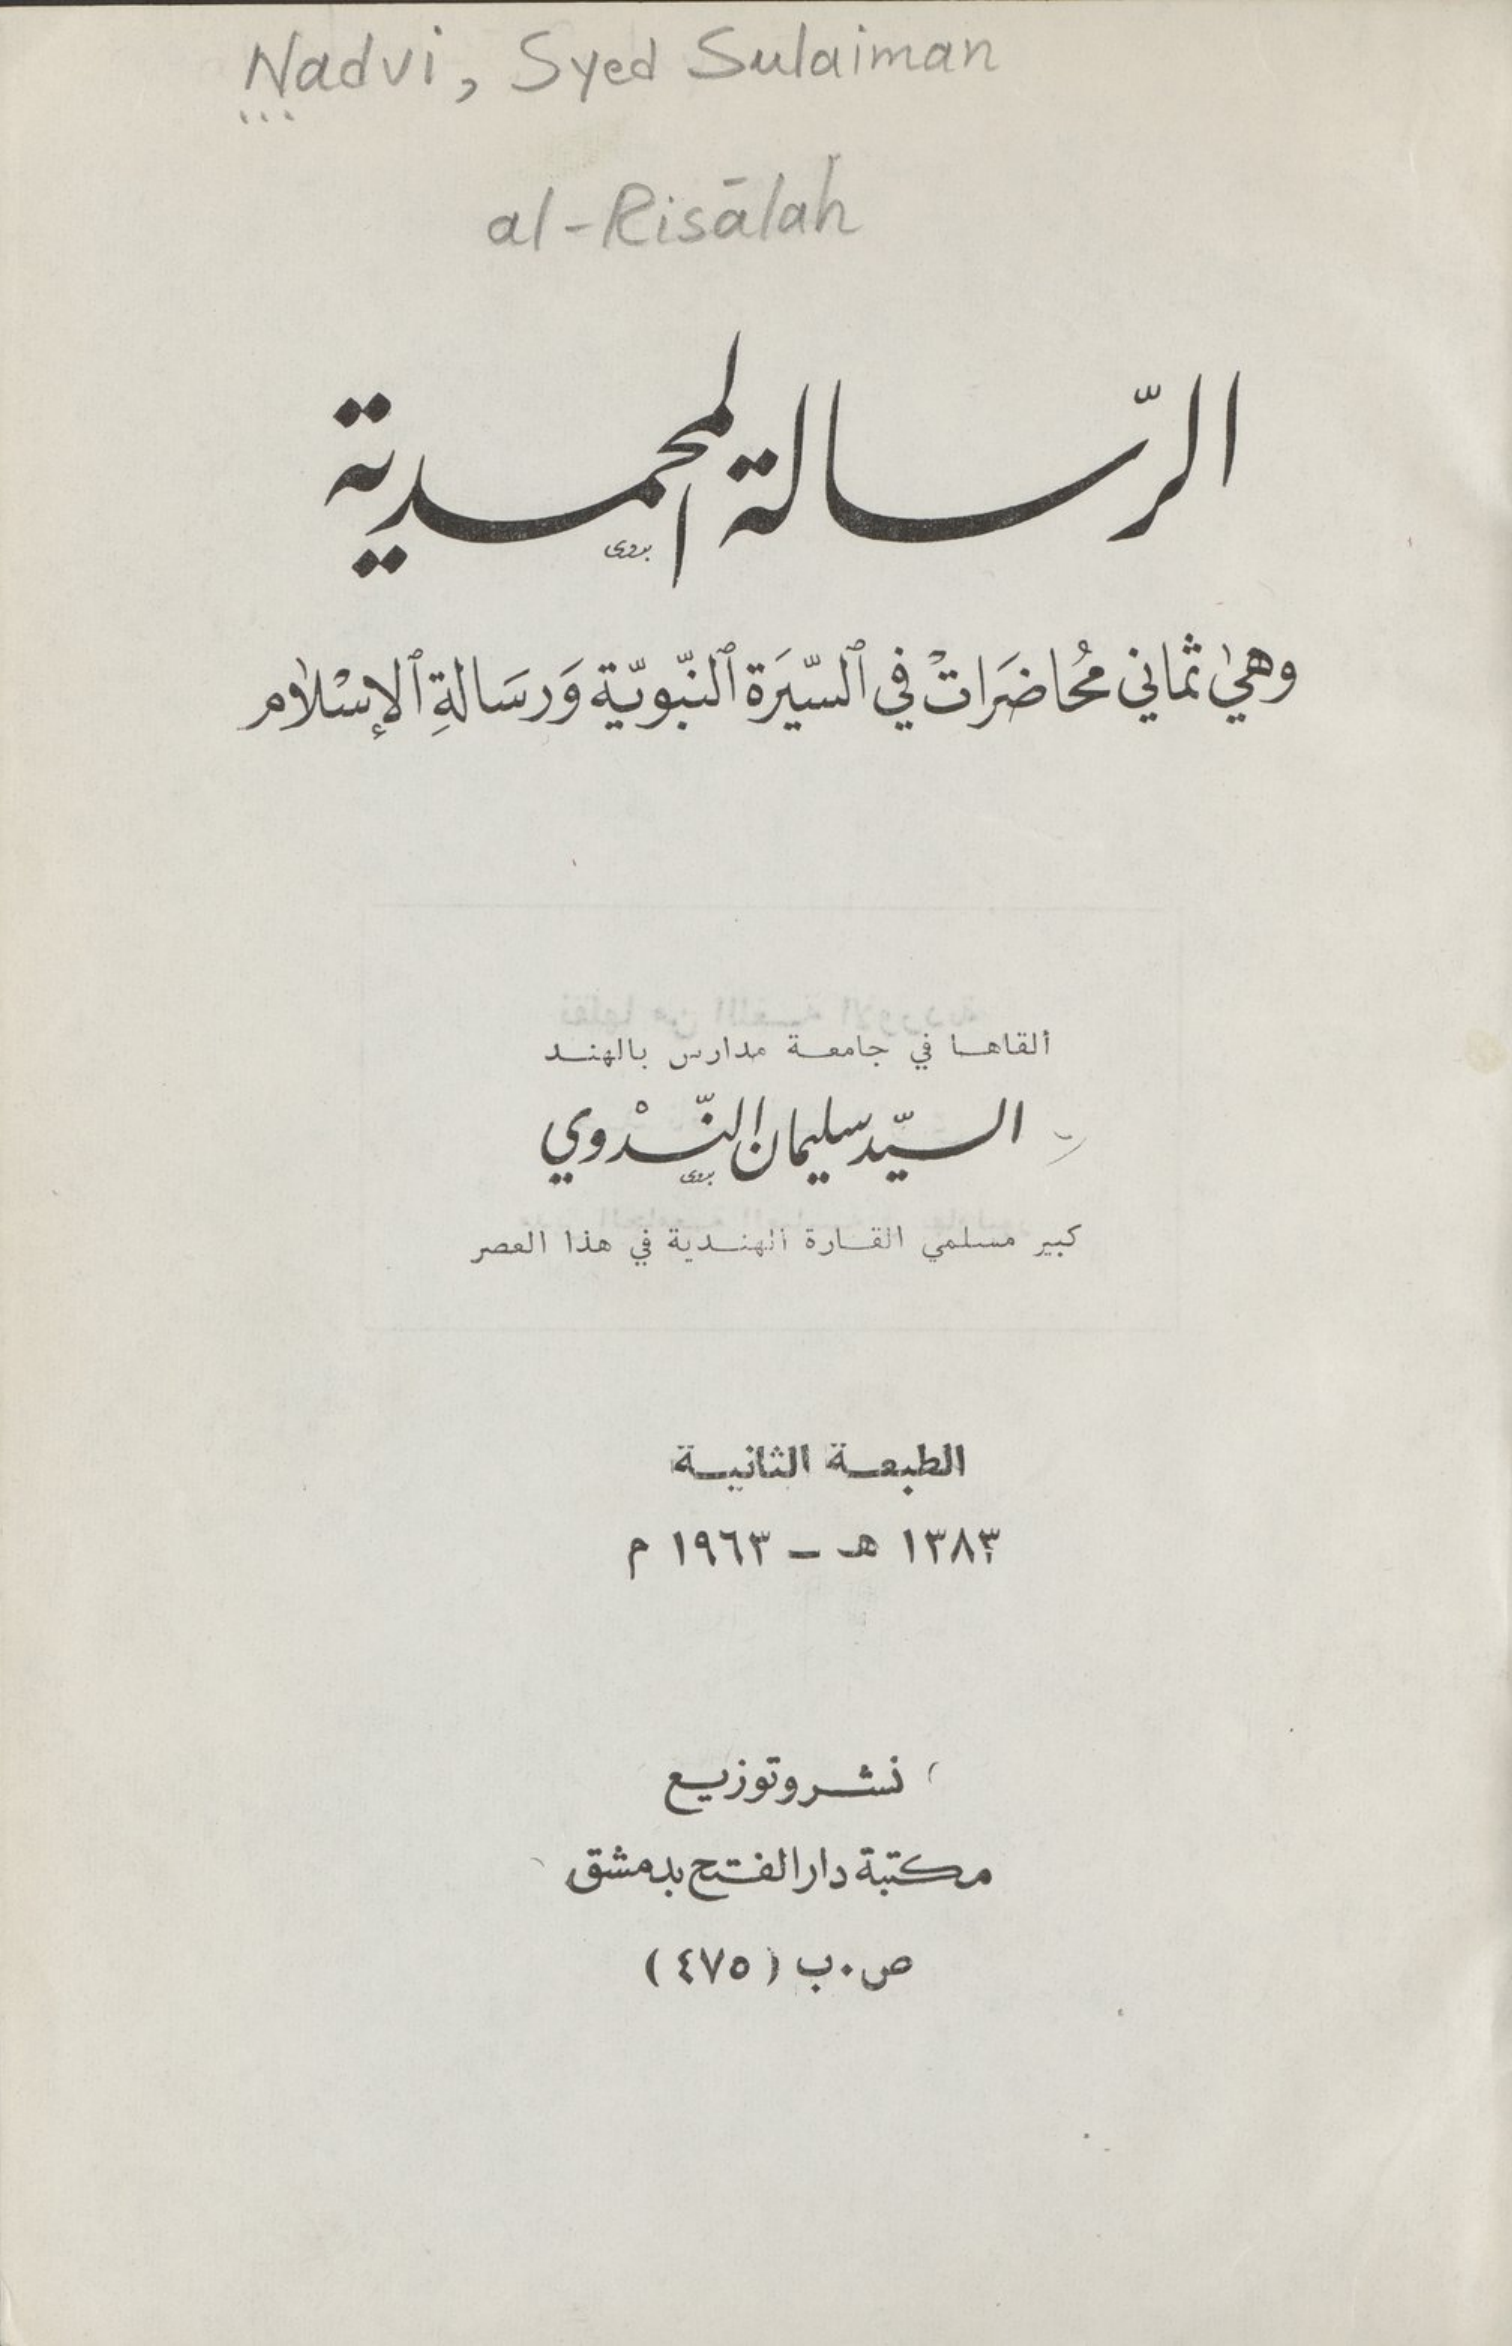 Nadvi, Syed Sulaiman
al-Risālah
الرّسالة المحمدية
بدوى
وهي ثماني مُحاضَراتْ في ٱلسّيَرة ٱلنّبوية وَرسَالةِ ٱلإسْلام
ألقاها في جامعة مدارس بالهند
السيّد سليمان النّدْوي
بدوى
كبير مسلمي القارة الهندية في هذا العصر
الطبعة الثانية
١٣٨٣ هـ – ١٩٦٣ م
نشر وتوزيع
مكتبة دار الفتح بدمشق
ص.ب (٤٧٥)